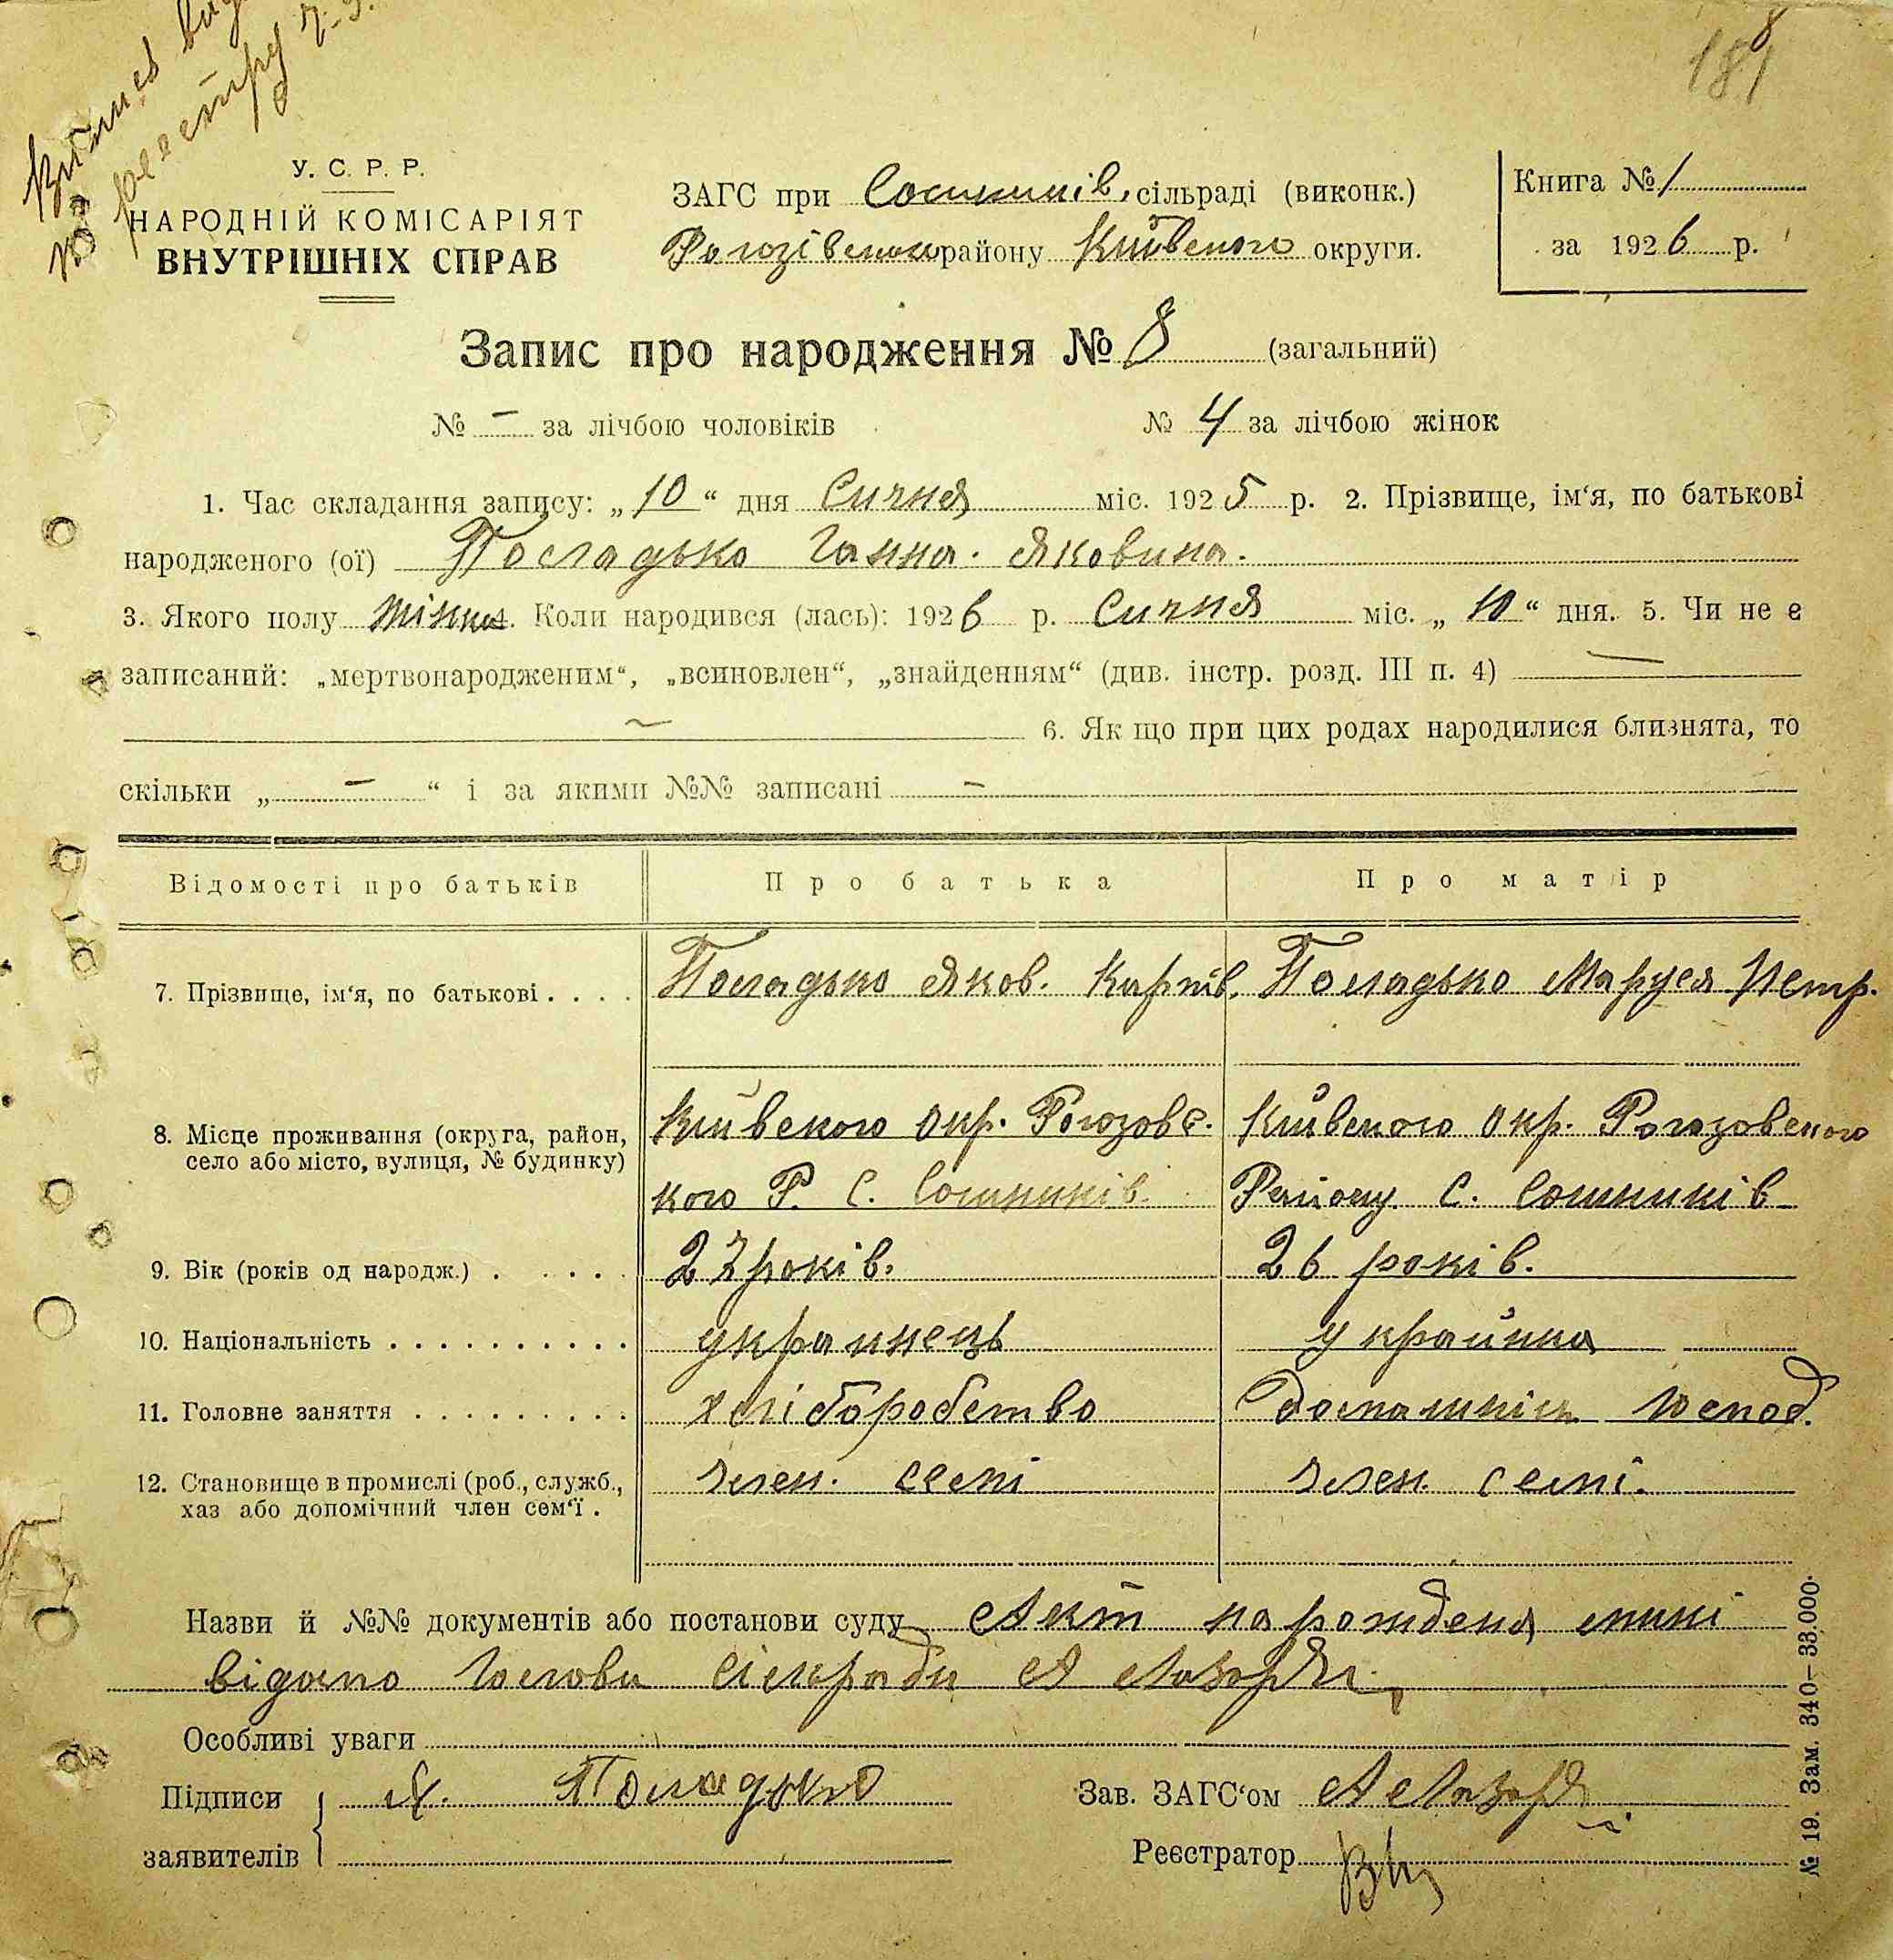 Витяг
по реєстру
8
181
У. С. Р. Р.
НАРОДНІЙ КОМІСАРІЯТ
ВНУТРІШНІХ СПРАВ
ЗАГС при Сошників. сільраді (виконк.)
Рогозівського району Київського округи.
Книга № 1
за 1926 р.
Запис про народження № 8 (загальний)
№ – за лічбою чоловіків № 4 за лічбою жінок
1. Час складання запису: „10“ дня Січня міс. 1925 р. 2. Прізвище, ім‘я, по батькові
народженого (ої) Посладько Ганна. Яковина.
3. Якого полу жіноч. Коли народився (лась): 1926 р. Січня міс. „10“ дня. 5. Чи не є
записаний: „мертвонародженим“, „всиновлен“, „знайденням“ (див. інстр. розд. III п. 4) —
~ 6. Як що при цих родах народилися близнята, то
скільки „ – “ і за якими №№ записані –
Відомості про батьків Про батька Про матір
7. Прізвище, ім‘я, по батькові . . . . Посладько Яков. Карпів. Посладько Маруся Петр.
8. Місце проживання (округа, район, село або місто, вулиця, № будинку)
Київского окр. Рогозовс. Київского окр. Рогозовского
кого Р. С. Сошників. Району. С. Сошників
9. Вік (років од народж.) . . . . . 27 років. 26 років.
10. Національність . . . . . . . . . . украинець украйнка
11. Головне заняття . . . . . . . . . . хліборобство Домашнім господ.
12. Становище в промислі (роб., служб., хаз або допомічний член сем‘ї .
член. семі член. семі.
Назви й №№ документів або постанови суду Акт на рождения
відано Голови Сілкради А Лазоря
Особливі уваги
Підписи Я. Посладько Зав. ЗАГС‘ом А Лазоря
заявителів Реєстратор
№ 19. Зам. 340—33.000.